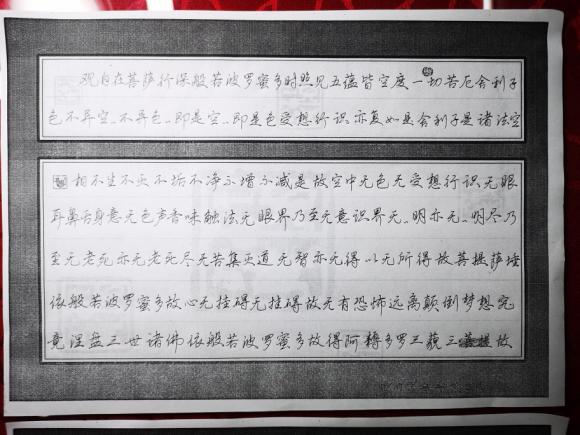 观自在菩萨行深般若波罗蜜多时照见五蕴皆空度一切苦厄舍利子
色不异空、不异色、即是空、即是色受想行识亦复如是舍利子是诸法空
相不生不灭不垢不净不增不减是故空中无色无受想行识无眼
耳鼻舌身意无色声香味触法无眼界乃至无意识界无、明亦无、明尽乃
至无老死亦无老死尽无苦集灭道无智亦无得以无所得故菩提萨埵
依般若波罗蜜多故心无挂碍无挂碍故无有恐怖远离颠倒梦想究
竟涅盘三世诸佛依般若波罗蜜多故得阿耨多罗三藐三菩提故